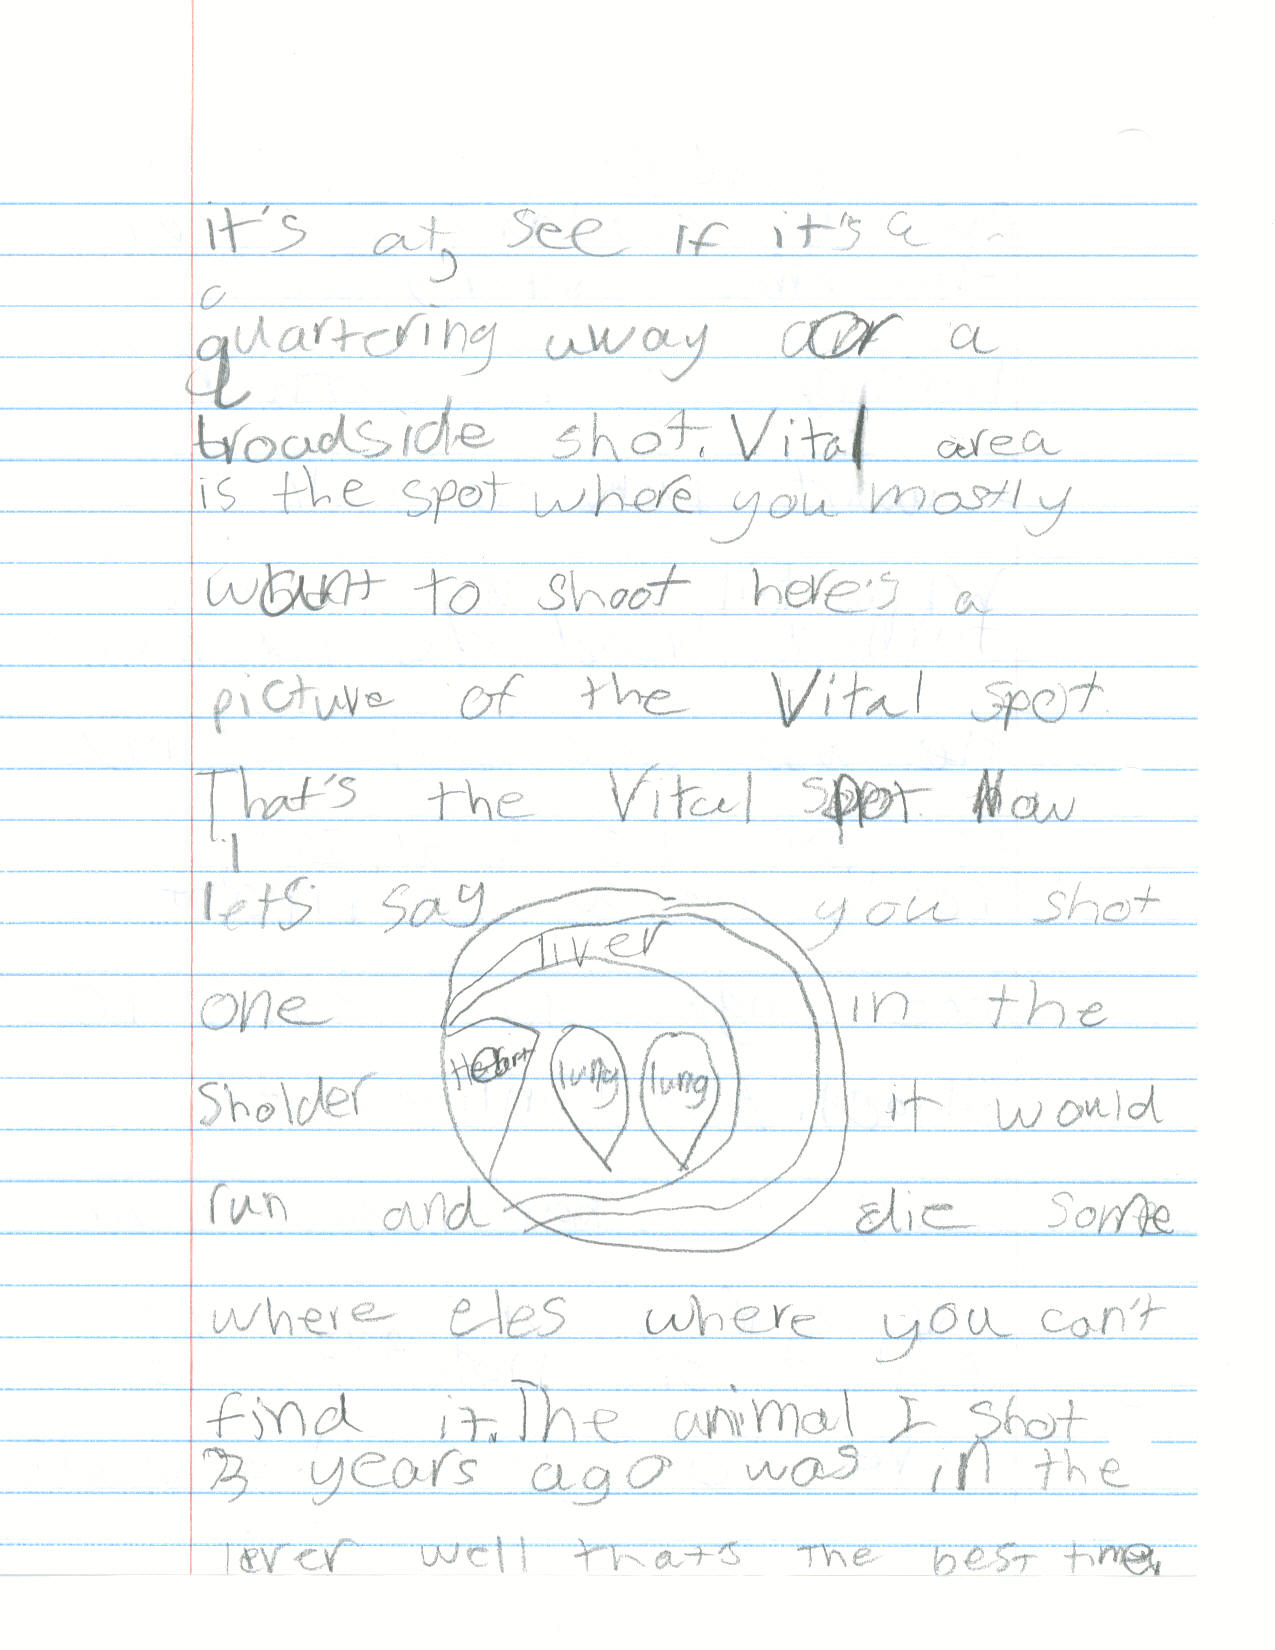 it's at, see if it's a
quartering away or a
broadside shot. Vital area
is the spot where you mostly
want to shoot here's a
picture of the Vital spot.
That's the Vital spot. Now
lets say you shot
liver
one in the
Heart lung lung
Sholder it would
run and die some
where eles where you can't
find it. The animal I shot
3 years ago was in the
lever well thats the best time,